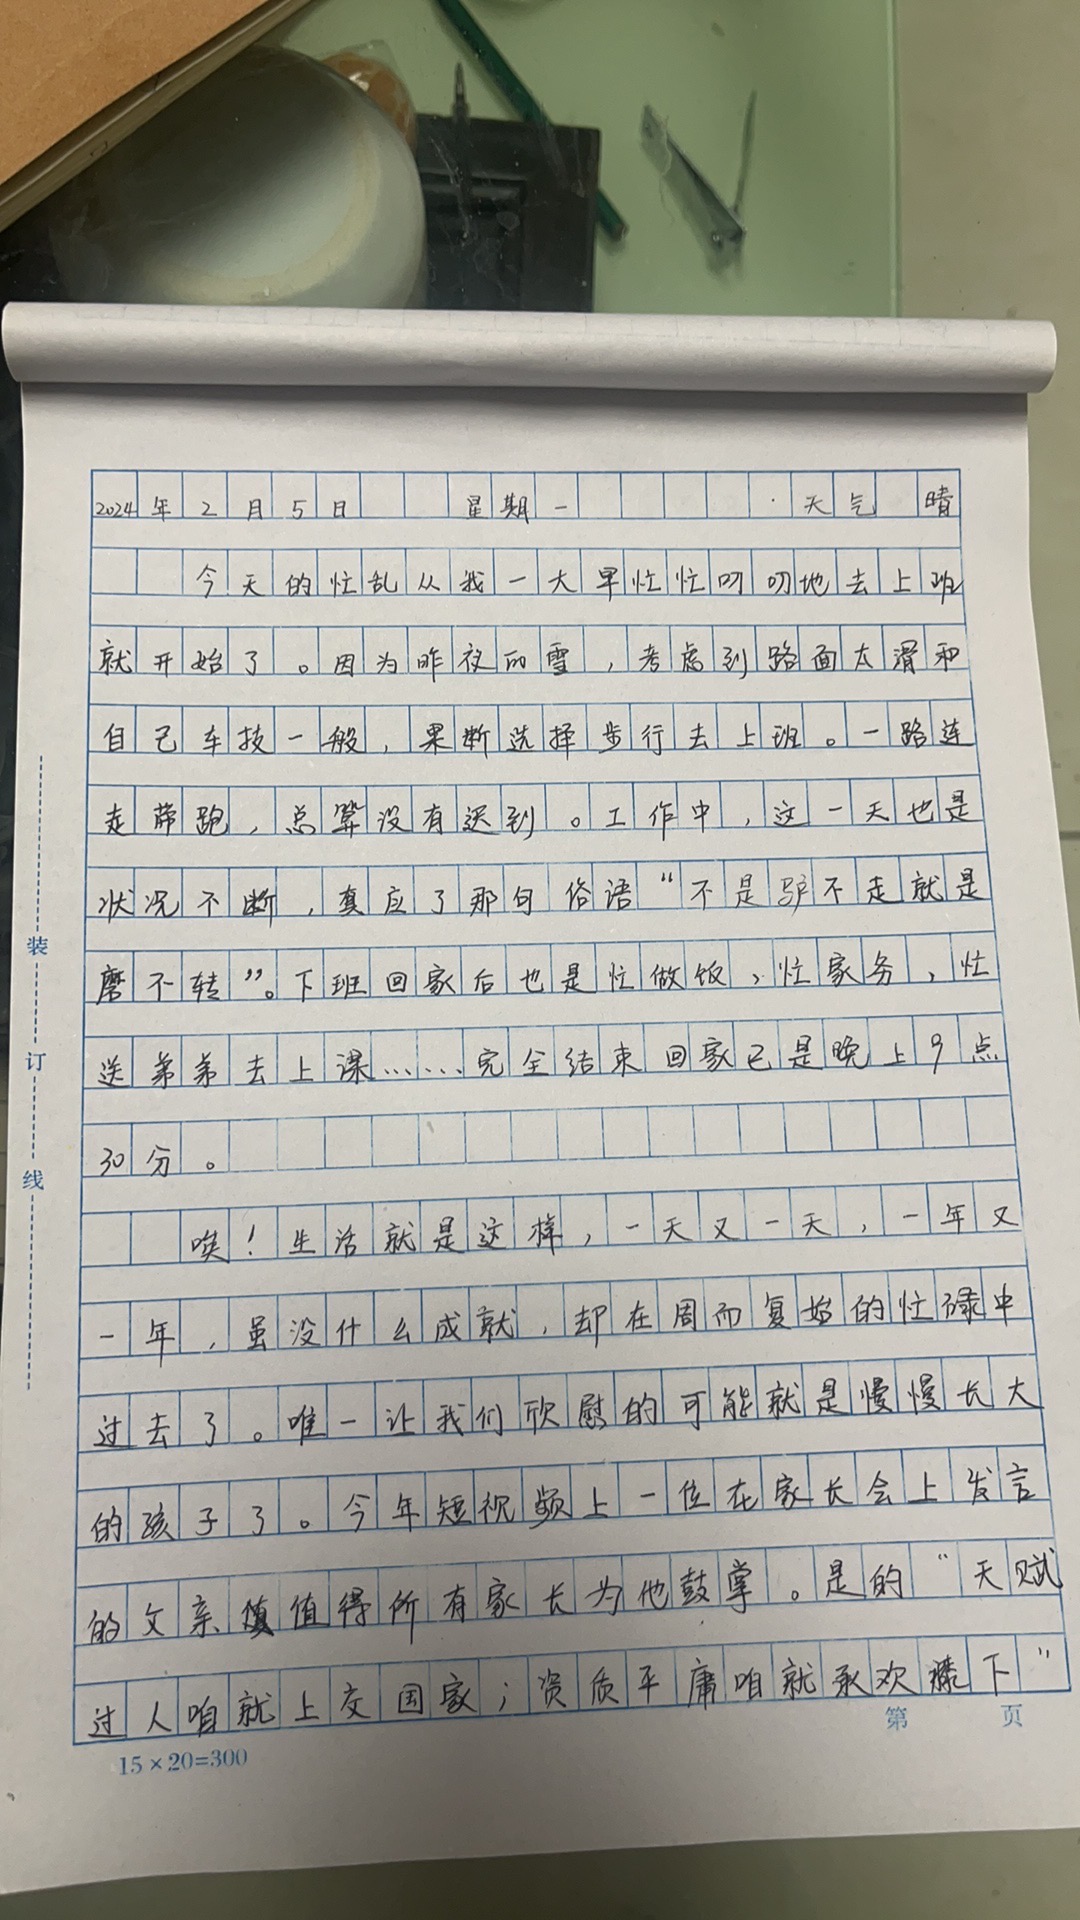 2024年2月5日 星期一 天气 晴
今天的忙乱从我一大早忙忙叨叨地去上班
就开始了。因为昨夜的雪，考虑到路面太滑和
自己车技一般，果断选择步行去上班。一路连
走带跑，总算没有迟到。工作中，这一天也是
状况不断，真应了那句俗语“不是驴不走就是
磨不转”。下班回家后也是忙做饭、忙家务，忙
送弟弟去上课……完全结束回家已是晚上9点
30分。
唉！生活就是这样，一天又一天，一年又
一年，虽没什么成就，却在周而复始的忙碌中
过去了。唯一让我们欣慰的可能就是慢慢长大
的孩子了。今年短视频上一位在家长会上发言
的父亲值得所有家长为他鼓掌。是的“天赋
过人咱就上交国家；资质平庸咱就承欢膝下”
装
订
线
第 页
15×20=300